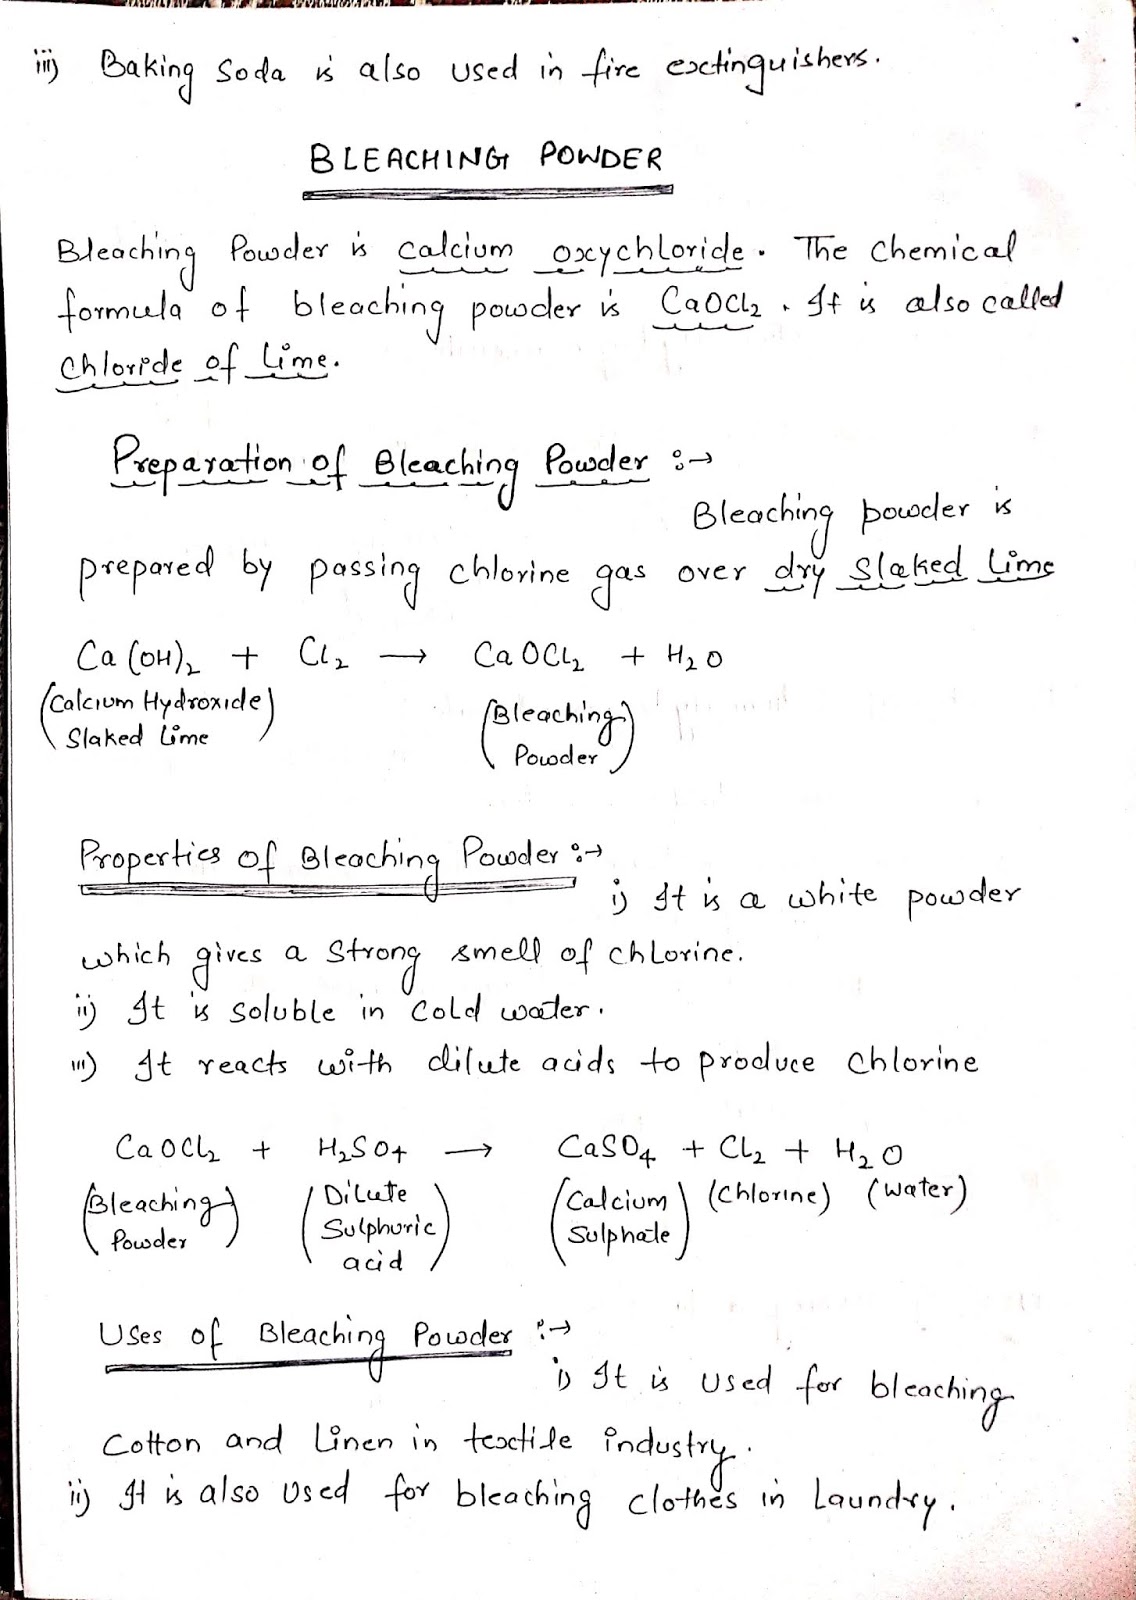 iii) Baking Soda is also used in fire extinguishers.
BLEACHING POWDER
Bleaching Powder is calcium oxychloride. The Chemical
formula of bleaching powder is CaOCl₂. It is also called
Chloride of Lime.
Preparation of Bleaching Powder :→
Bleaching powder is
prepared by passing chlorine gas over dry Slaked Lime
Ca(OH)₂ + Cl₂ → CaOCl₂ + H₂O
(Calcium Hydroxide) (Bleaching)
Slaked Lime Powder
Properties of Bleaching Powder :→
i) It is a white powder
which gives a strong smell of chlorine.
ii) It is soluble in cold water.
iii) It reacts with dilute acids to produce chlorine
CaOCl₂ + H₂SO₄ → CaSO₄ + Cl₂ + H₂O
(Bleaching (Dilute (Calcium (Chlorine) (water)
Powder) Sulphuric Sulphate)
acid)
Uses of Bleaching Powder :→
i) It is used for bleaching
Cotton and Linen in textile industry.
ii) It is also used for bleaching clothes in Laundry.